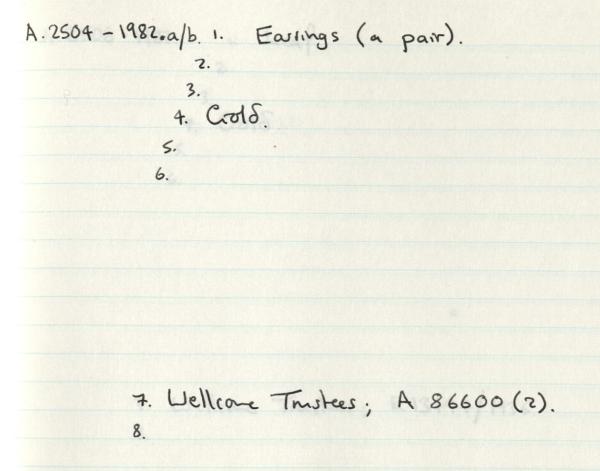 A.2504-1982.a/b. 1. Earrings (a pair).
2.
3.
4. Gold.
5.
6.
7. Wellcome Trustees; A 86600 (2).
8.